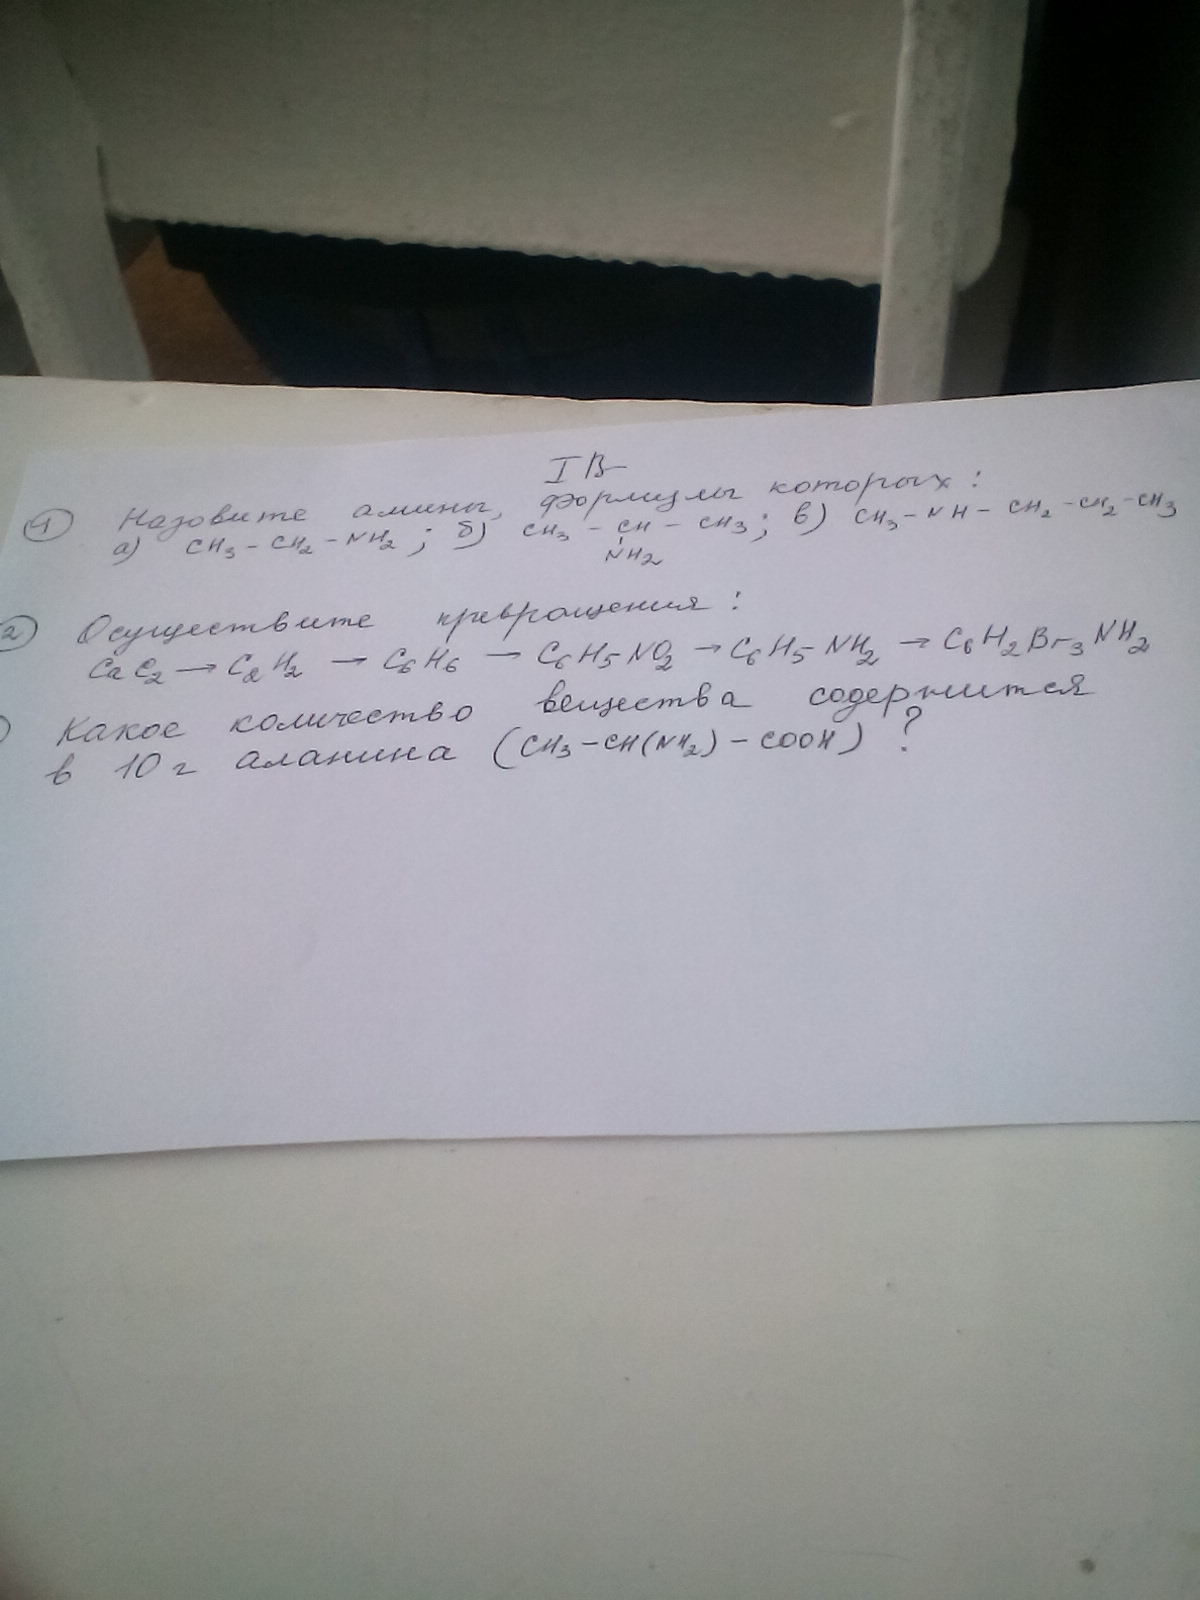 I В
① Назовите амины, формулы которых:
а) CH₃ – CH₂ – NH₂ ; б) CH₃ – CH – CH₃ ; в) CH₃ – NH – CH₂ – CH₂ – CH₃
NH₂
2) Осуществите превращения:
CaC₂ → C₂H₂ → C₆H₆ → C₆H₅NO₂ → C₆H₅NH₂ → C₆H₂Br₃NH₂
) Какое количество вещества содержится
в 10 г аланина (CH₃ – CH(NH₂) – COOH) ?